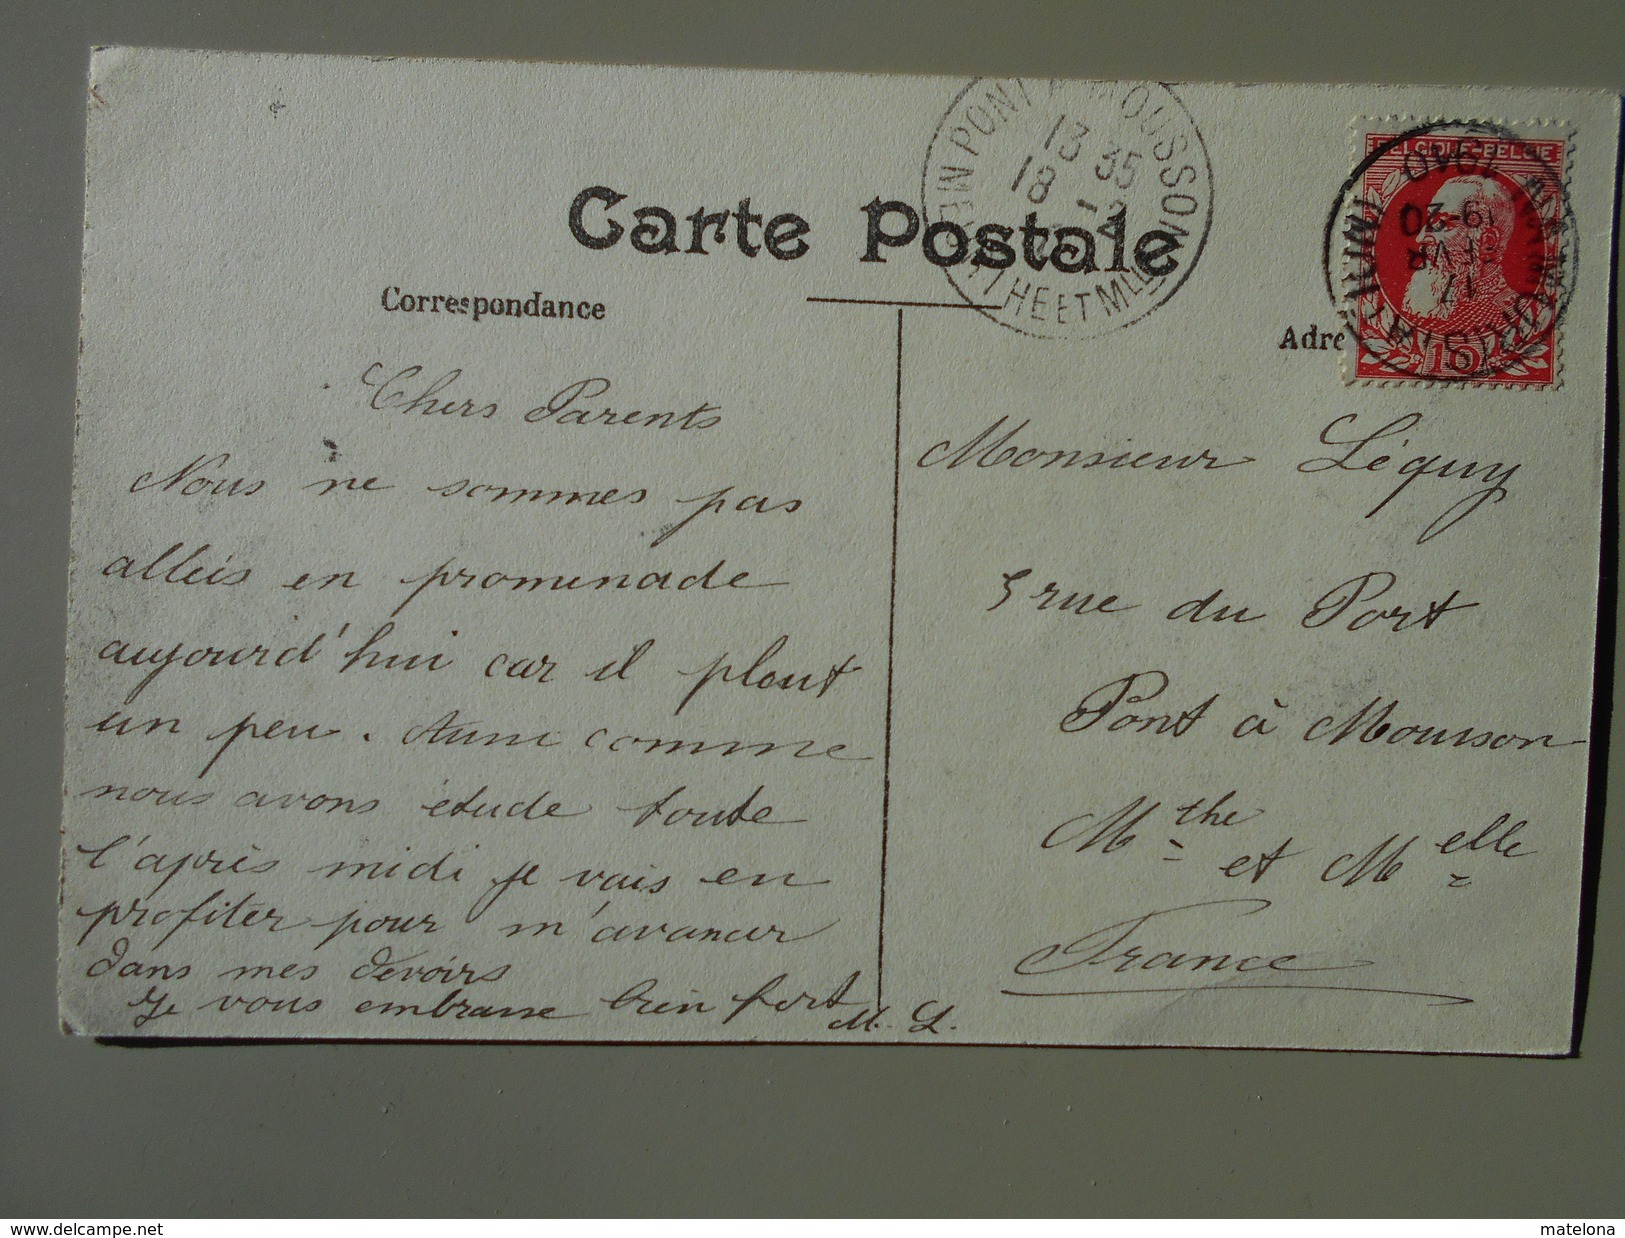 Carte Postale
Correspondance
Adre
PONT A MOUSSON
13 35
18 - 2
METHE ET MLLE
BELGIQUE-BELGIE
1910
19-20
FEVR
17
10
Chers Parents
Nous ne sommes pas
alleis en promenade
aujourd'hui car il pleut
un peu. Aussi comme
nous avons étude toute
l'après midi je vais en
profiter pour m'avancer
dans mes devoirs
Je vous embrasse bien fort
M. L.
Monsieur Léquy
5 rue du Port
Pont à Mousson
Mthe et Melle
France
delcampe.net
matelona